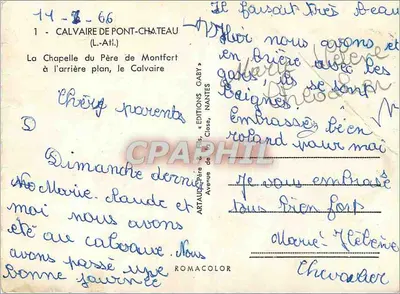 14-7-66
1 - CALVAIRE DE PONT-CHATEAU
(L.-Atl.)
La Chapelle du Père de Montfort
à l'arrière plan, le Calvaire
Chers parents
Dimanche dernier
Marie-Claude et
moi nous avons
été au calvaire. Nous
avons passé une
bonne journée
Il faisait très beau
Hier nous avons été
en prière avec les
Marie Hélène
baignés
Embrassez bien
roland pour moi
Je vous embrasse
tous bien fort
Marie-Hélène
Chevalier
ARTAUD Père & Fils, "EDITIONS GABY"
Avenue de la Close, NANTES
ROMACOLOR
CPARAMA